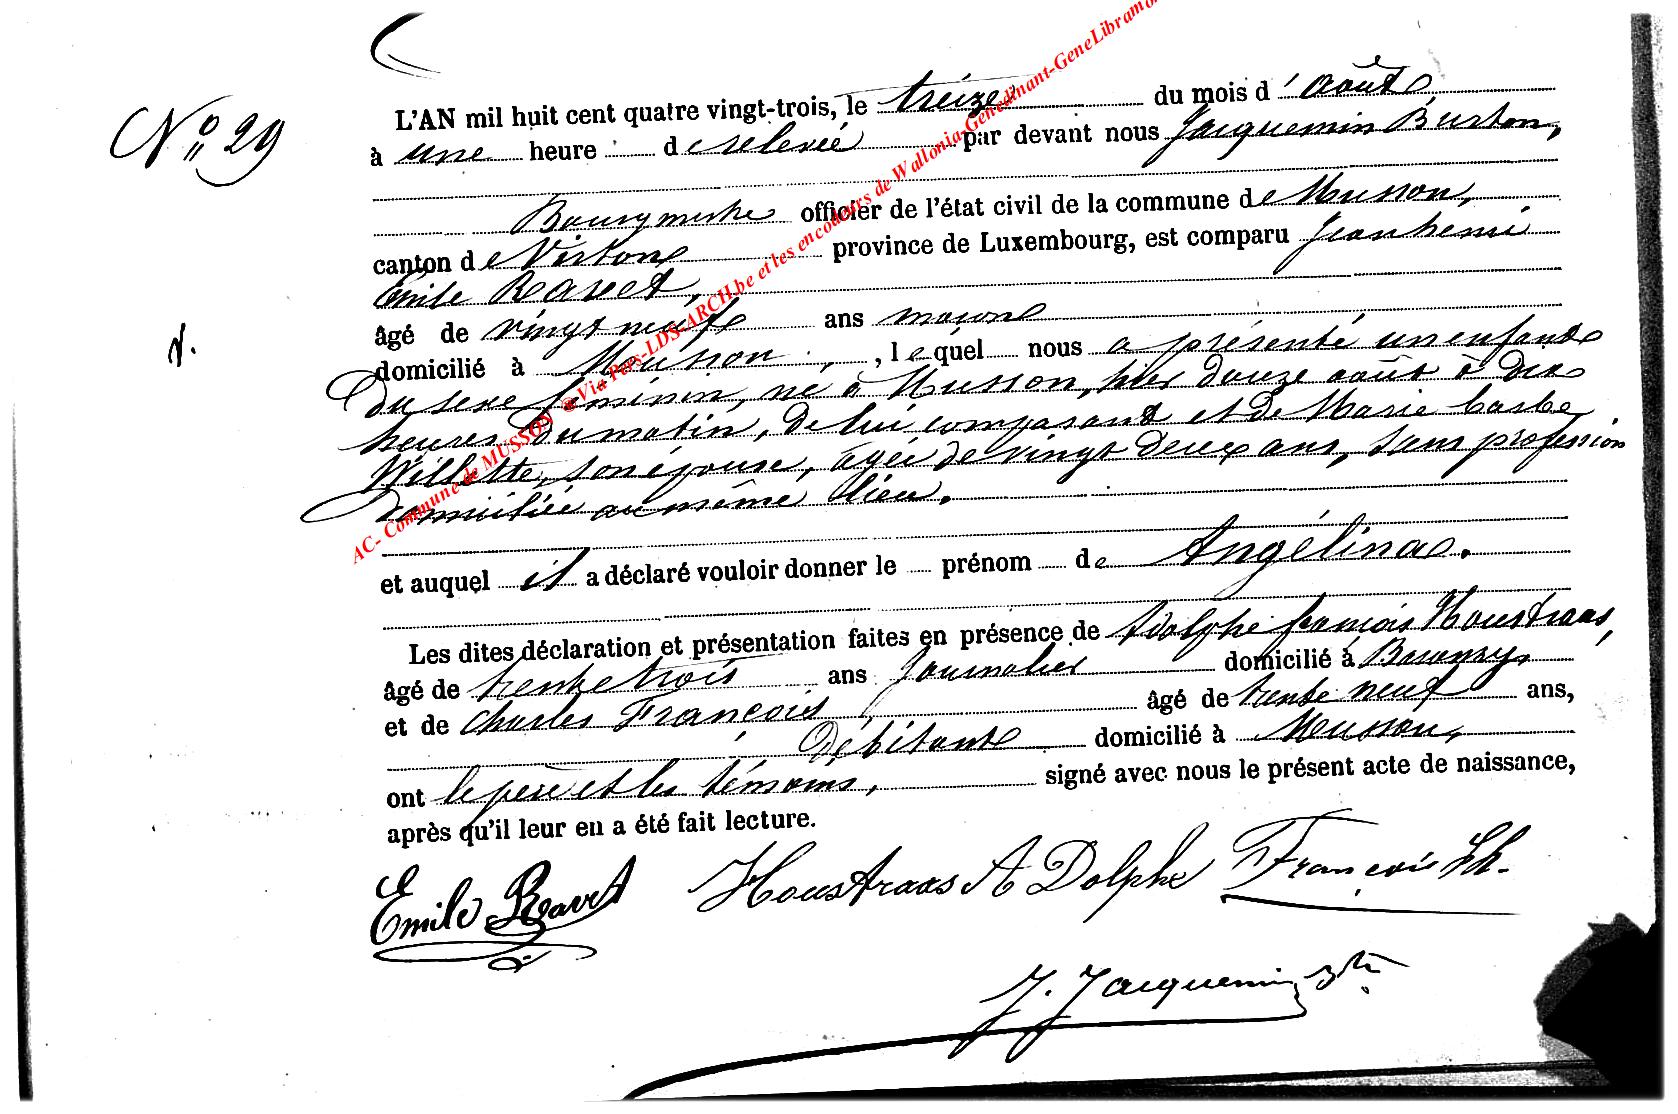 L'AN mil huit cent quatre vingt-trois, le treize du mois d'août,
N° 29
à une heure de relevée par devant nous Jacquemin Burton,
Bourgmestre officier de l'état civil de la commune de Musson,
canton de Virton province de Luxembourg, est comparu Jean henri
Émile Ravet,
âgé de vingt neuf ans maçon
domicilié à Musson, lequel nous a présenté un enfant
du sexe féminin, né à Musson, hier douze août à dix
heures du matin, de lui comparant et de Marie barbe
Willette, son épouse, âgée de vingt deux ans, sans profession
domiciliée au même lieu.
et auquel il a déclaré vouloir donner le prénom de Angélina.
Les dites déclaration et présentation faites en présence de Adolphe françois Houstraas,
âgé de trente trois ans Journalier domicilié à Baranzy
et de Charles François, âgé de trente neuf ans,
Débitant domicilié à Musson,
ont le père et les témoins, signé avec nous le présent acte de naissance,
après qu'il leur en a été fait lecture.
Emile Ravet Houstraas ADolphe François Ch.
J. Jacquemin
AC- Commune de MUSSON @Via Pers-LDS-ARCH.be et les encodeurs de Wallonia-Genedinant-GeneLibramo